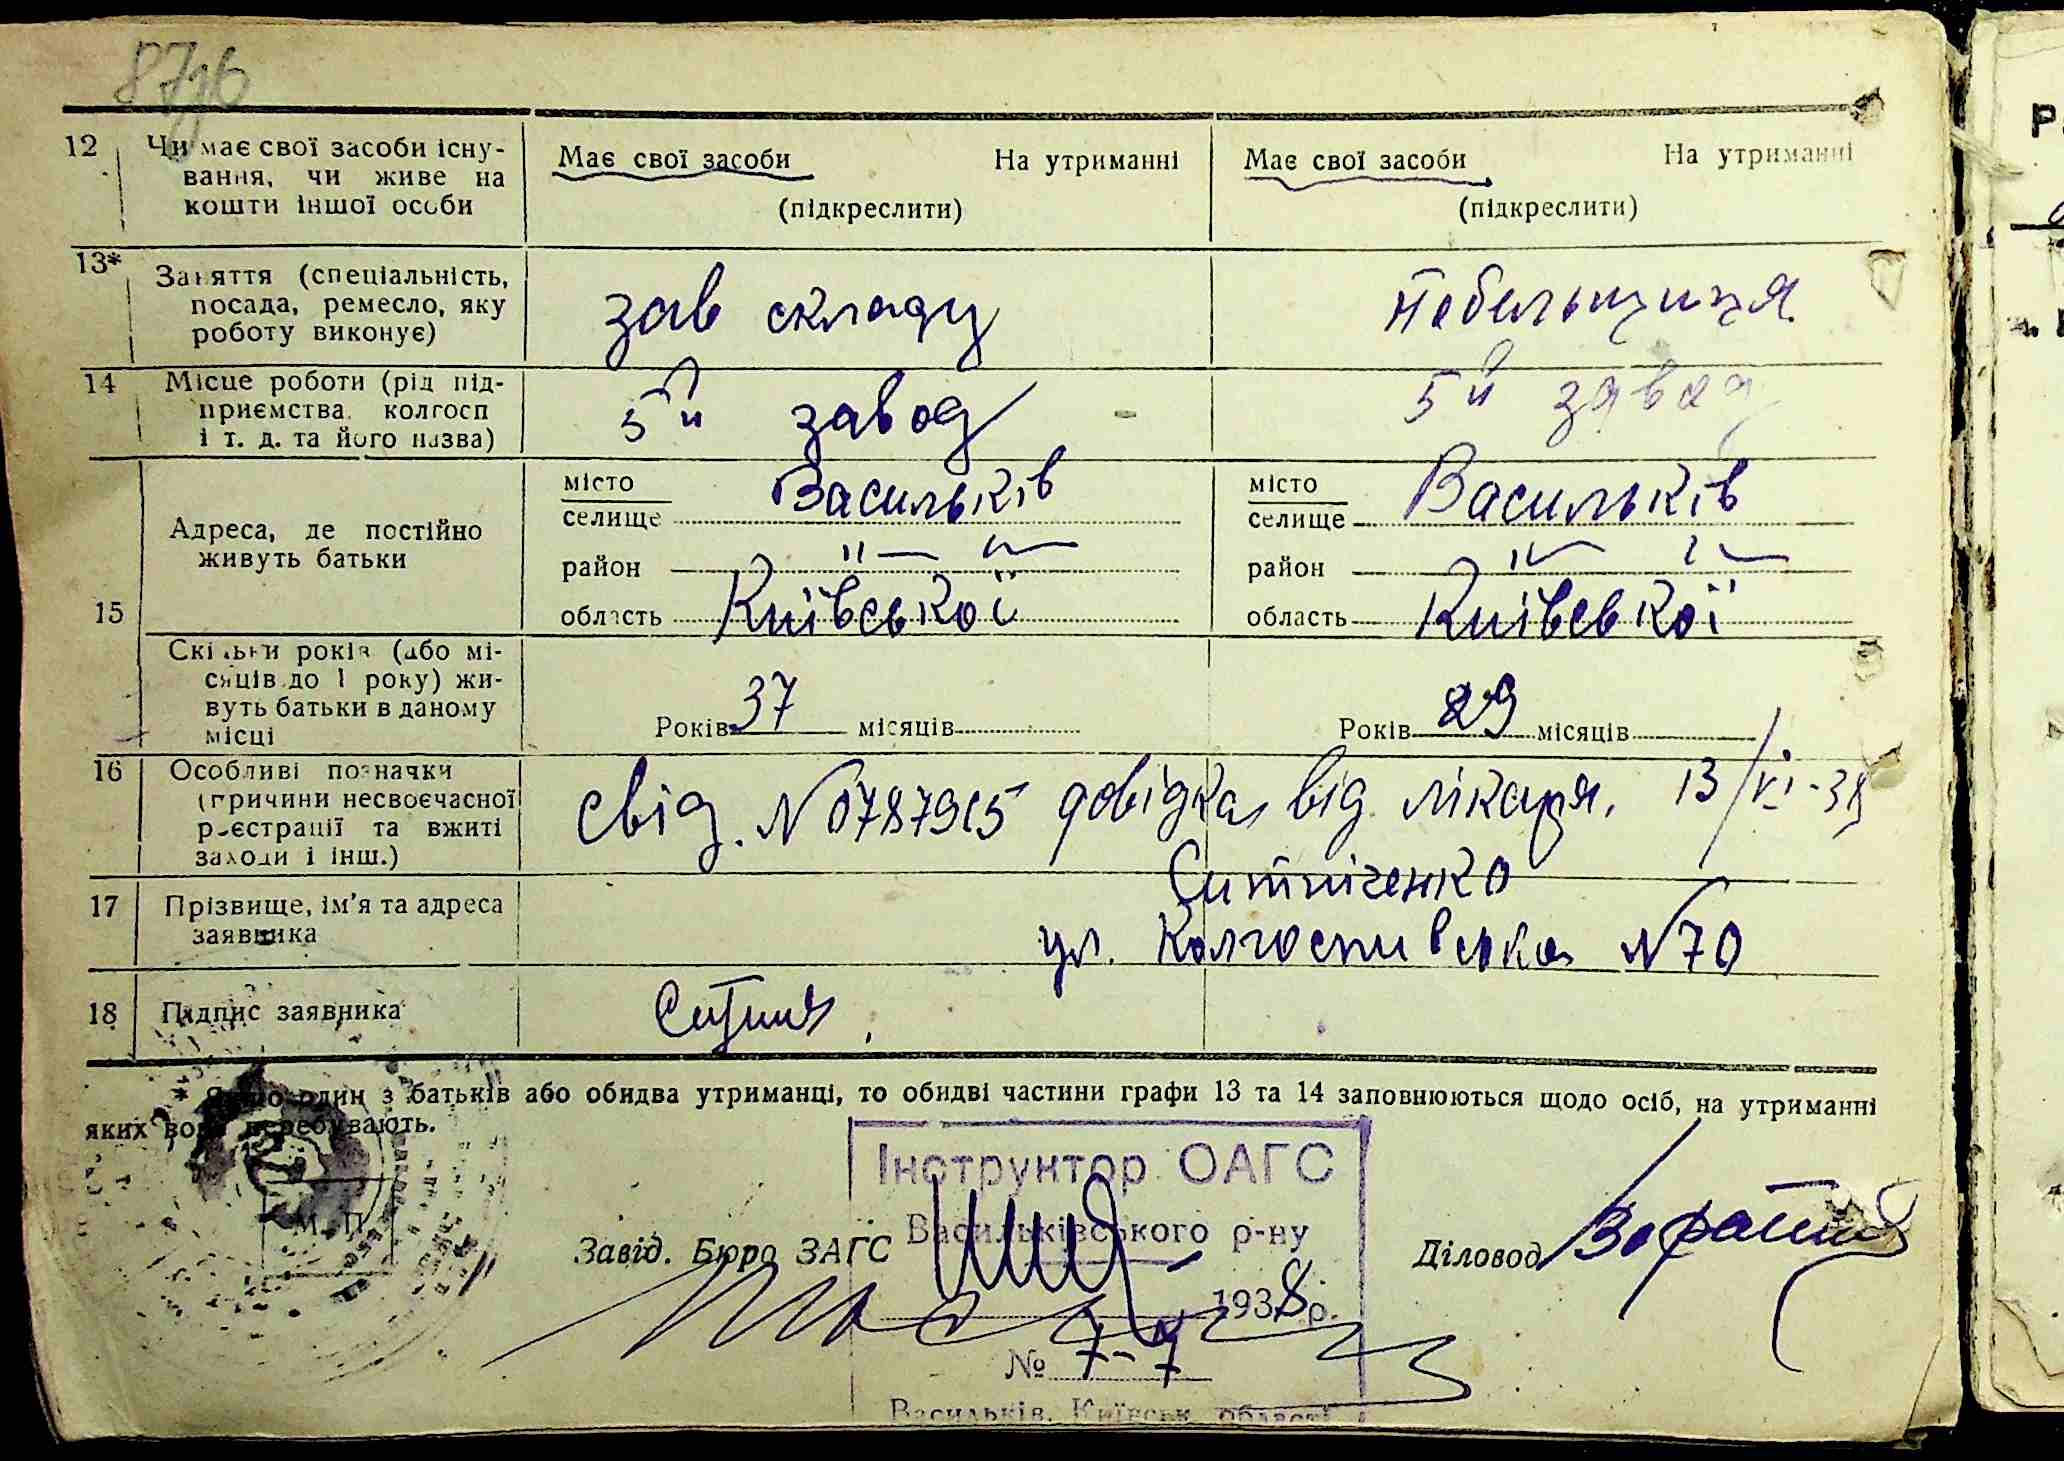 12 Чи має свої засоби існу-
вання, чи живе на
кошти іншої особи
Має свої засоби На утриманні
(підкреслити)
Має свої засоби На утриманні
(підкреслити)
13* Заняття (спеціальність,
посада, ремесло, яку
роботу виконує)
зав складу
мебельщиця
14 Місце роботи (рід під-
приємства, колгосп
і т. д. та його назва)
5й завод
5й завод
15 Адреса, де постійно
живуть батьки
місто
селище Васильків
район
область Київської
місто
селище Васильків
район
область Київської
Скільки років (або мі-
сяців до 1 року) жи-
вуть батьки в даному
місці
Років 37 місяців
Років 29 місяців
16 Особливі позначки
(причини несвоєчасної
реєстрації та вжиті
заходи і інш.)
свід. № 0787915 довідка від лікаря. 13/VI-38
17 Прізвище, ім'я та адреса
заявника
Ситніченко
ул. Колгоспивська №70
18 Підпис заявника
* Якщо один з батьків або обидва утриманці, то обидві частини графи 13 та 14 заповнюються щодо осіб, на утриманні
яких вони перебувають.
М. П.
Завід. Бюро ЗАГС
Інструктор ОАГС
Васильківського р-ну
1938 р.
№ 7-7
Васильків, Київськ. області
Діловод